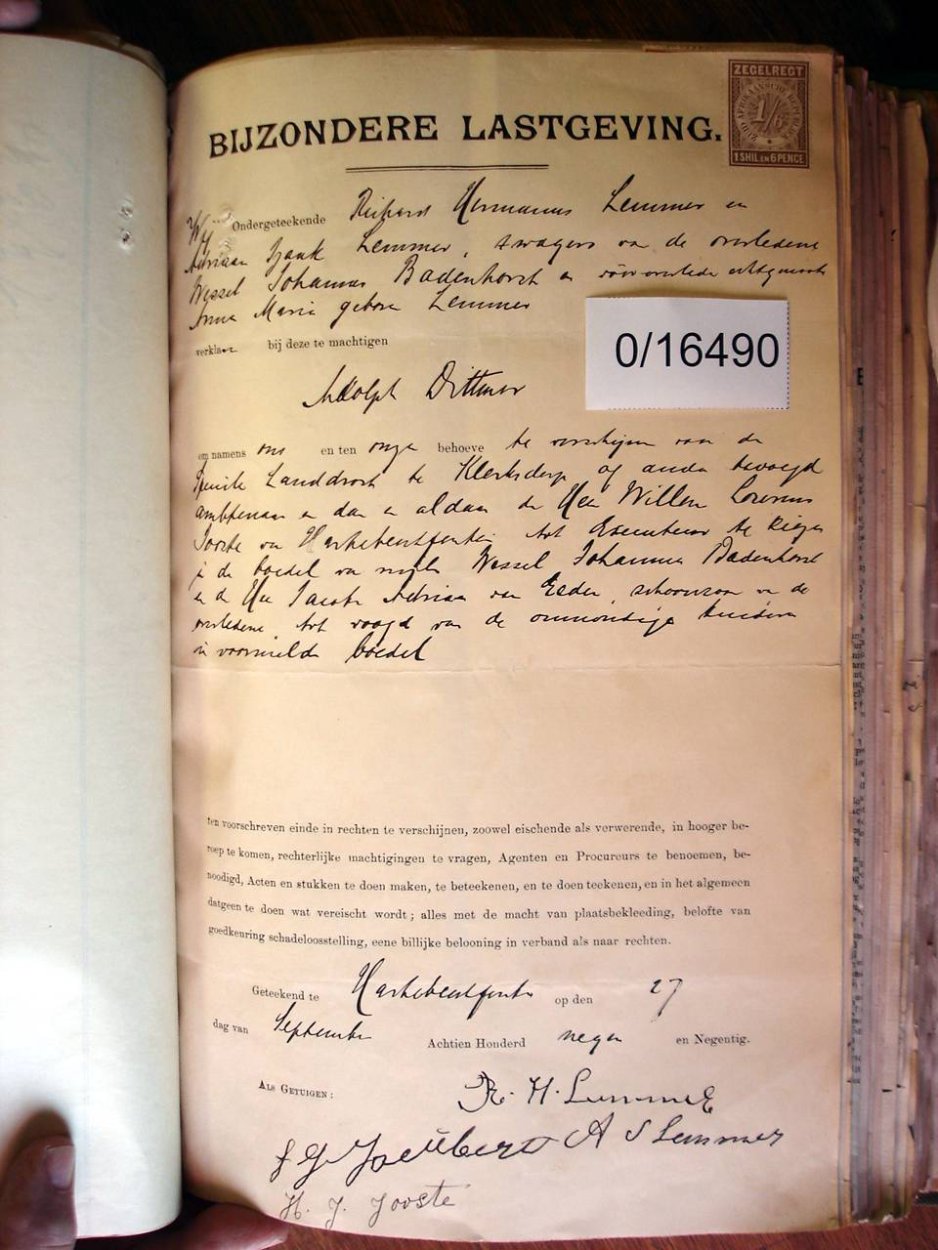 ZEGELREGT
1/6
1 SHIL EN 6 PENCE
BIJZONDERE LASTGEVING.
Wij Ondergeteekende Hermanus Lemmer en
Adriaan Lemmer, swagers van de overledene
Wessel Johannes Badenhorst en
Anna Maria gebore Lemmer
verklaren bij deze te machtigen
0/16490
Adolph Dittmar
om namens ons en ten onze behoeve te verschijnen voor de
Landdrost te Klerksdorp of ander bevoegd
ambtenaar en dan en aldaar de Heer Willem Lourens
Jooste van Hartebeestfontein tot Executeur te kiezen
in de boedel van wijlen Wessel Johannes Badenhorst
en de Heer Jacob Adriaan van Eeden, schoonzoon van de
overledene, tot voogd van de onmondige kinderen
in voormelde boedel
ten voorschreven einde in rechten te verschijnen, zoowel eischende als verwerende, in hooger be-
roep te komen, rechterlijke machtigingen te vragen, Agenten en Procureurs te benoemen, be-
noodigd, Acten en stukken te doen maken, te beteekenen, en te doen teekenen, en in het algemeen
datgeen te doen wat vereischt wordt; alles met de macht van plaatsbekleeding, belofte van
goedkeuring schadeloosstelling, eene billijke belooning in verband als naar rechten.
Geteekend te Hartebeestfontein op den 27
dag van September Achtien Honderd negen en Negentig.
ALS GETUIGEN: R. H. Lemmer
J G Joubert A S Lemmer
H. J. Jooste